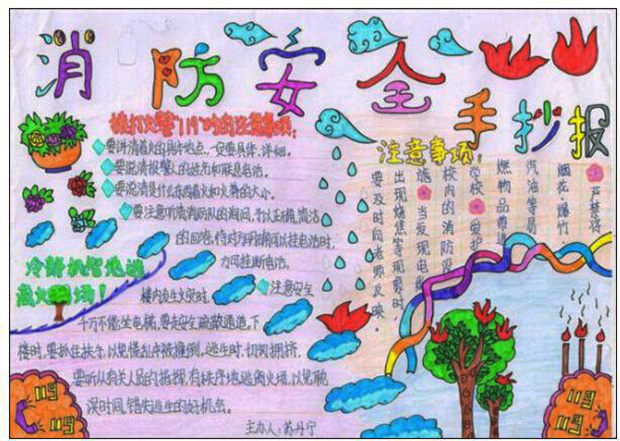 消防安全
手抄报
拨打火警"119"时的注意事项:
要讲清着火的具体地点,一定要具体、详细。
要说清报警人的姓名和联系电话。
要说清是什么东西着火和火势的大小。
要注意听清消防队的询问,予以正确、简洁
的回答,待对方明确可以挂电话时,
方可挂断电话。
冷静机智地逃
离火场!
注意安全
楼内发生火灾时,
千万不能坐电梯,要走安全疏散通道。下
楼时,要抓住扶手,以免慌乱中被撞倒。逃生时,切勿拥挤,
要听从有关人员的指挥,有秩序地逃离火场,以免耽
误时间,错失逃生的好机会。
主办人:苏丹宁
注意事项:
严禁将
烟花、爆竹
汽油等易
燃物品带进
学校 爱护
校内的消防设
施 当发现电
出现烧焦等现象时,
要及时向老师反映。
119
119
119
119